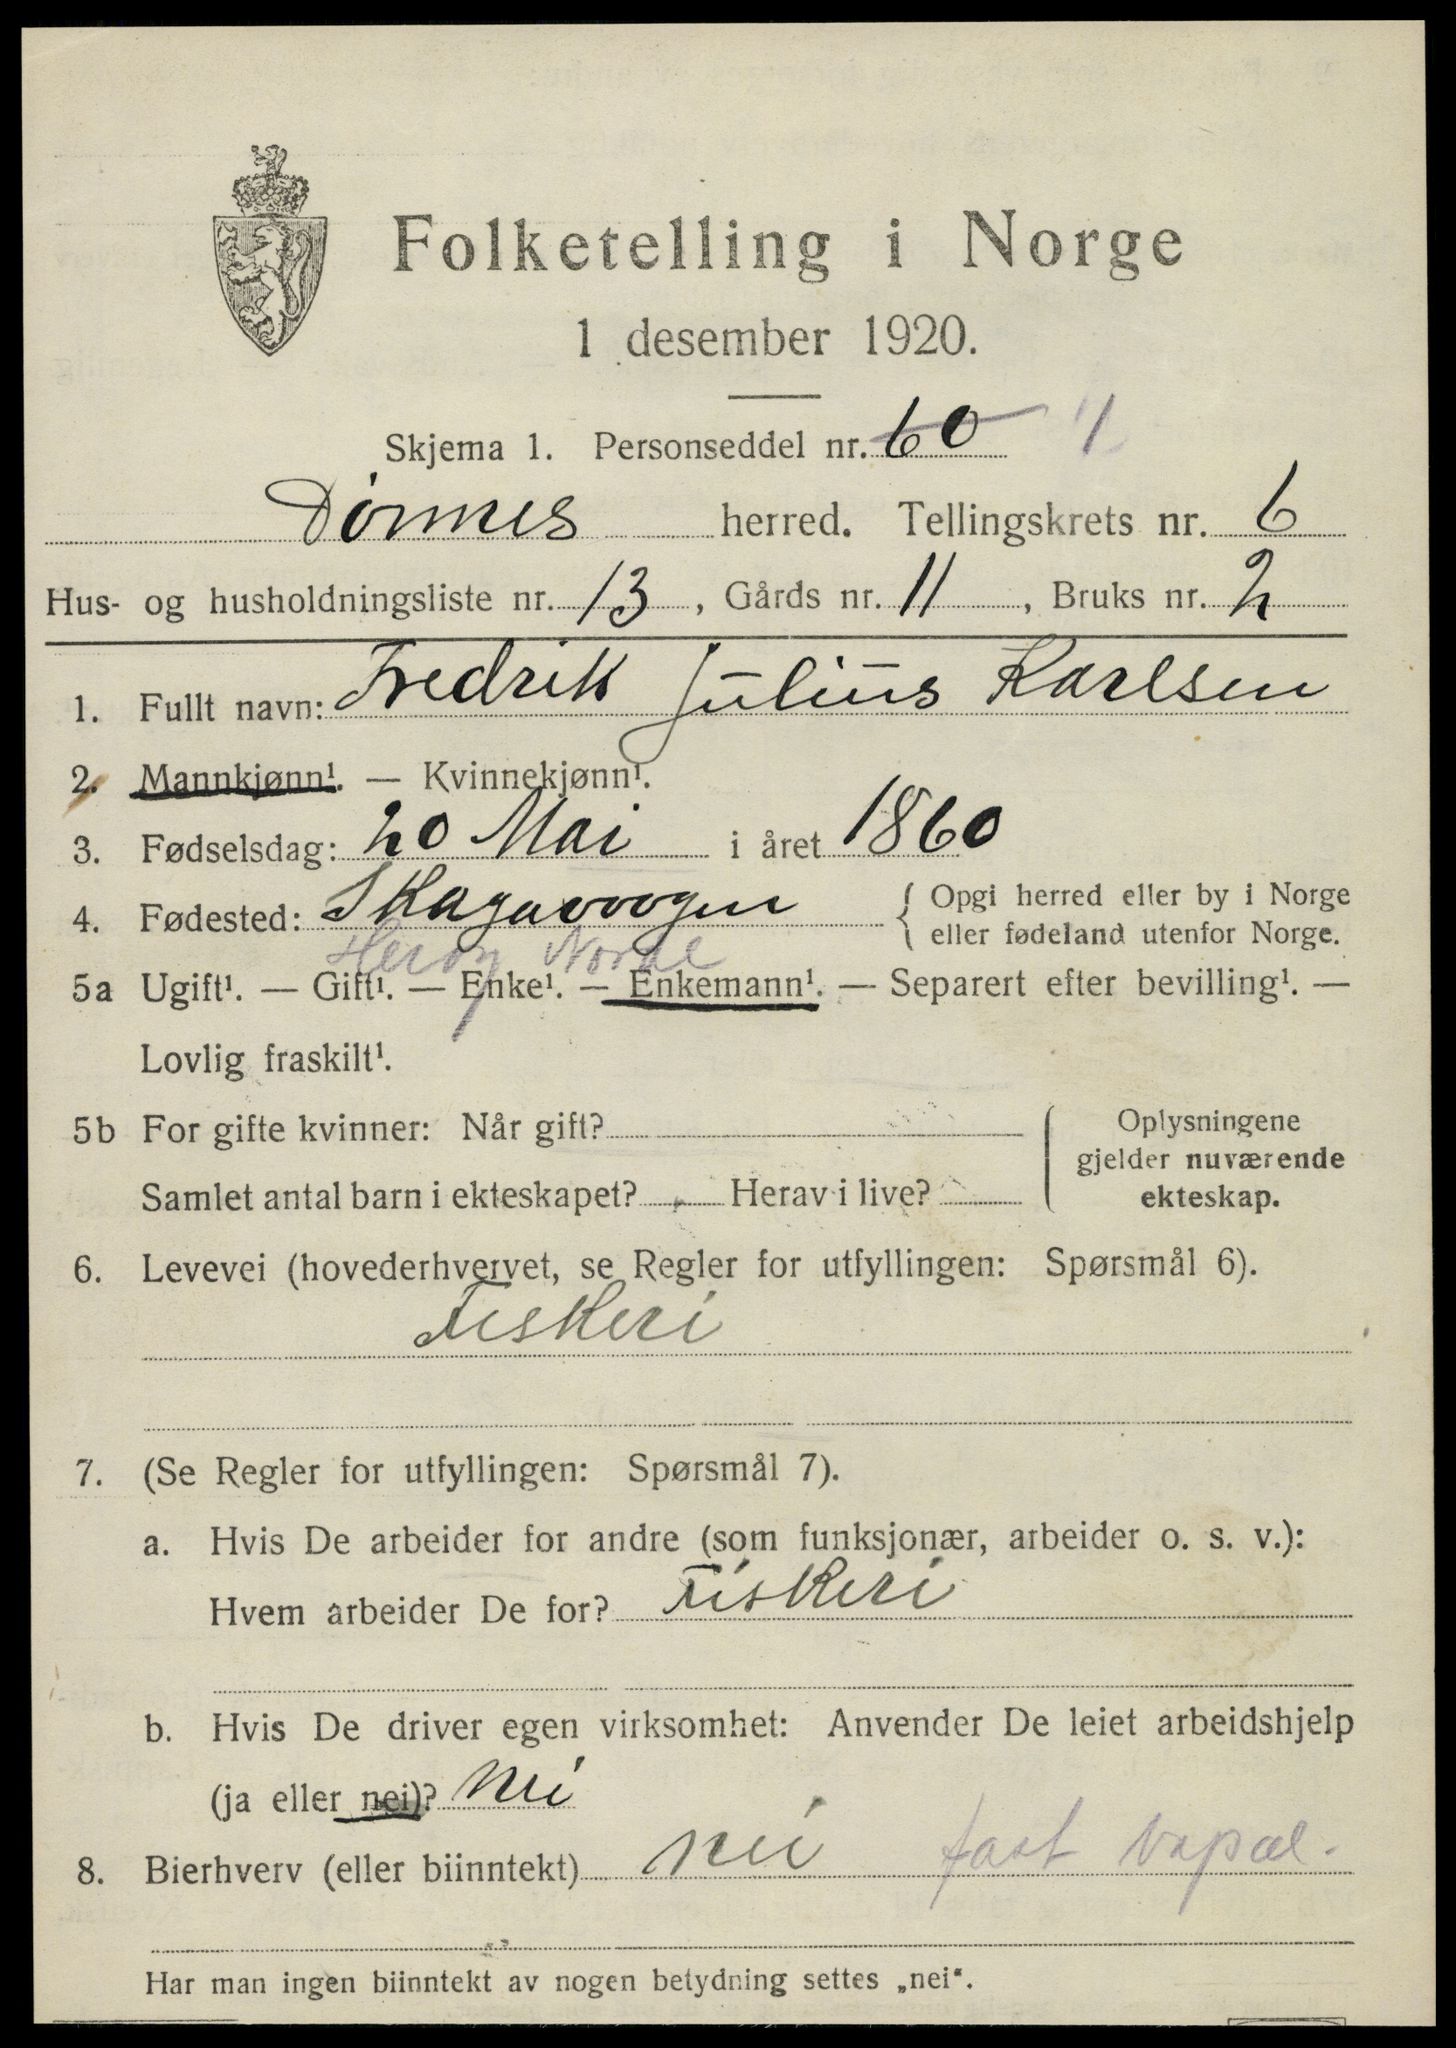 Folketelling i Norge
1 desember 1920.
Skjema 1. Personseddel nr. 60
Dønnes herred. Tellingskrets nr. 6
Hus- og husholdningsliste nr. 13, Gårds nr. 11, Bruks nr. 2
1. Fullt navn: Fredrik Julius Karlsen
2. Mannkjønn¹. — Kvinnekjønn¹.
3. Fødselsdag: 20 Mai i året 1860
4. Fødested: Skagavvogen { Opgi herred eller by i Norge
eller fødeland utenfor Norge.
Herøy Nordl
5a Ugift¹. — Gift¹. — Enke¹. — Enkemann¹. — Separert efter bevilling¹. —
Lovlig fraskilt¹.
5b For gifte kvinner: Når gift?
Samlet antal barn i ekteskapet? Herav i live?
Oplysningene
gjelder nuværende
ekteskap.
6. Levevei (hovederhvervet, se Regler for utfyllingen: Spørsmål 6).
Fiskeri
7. (Se Regler for utfyllingen: Spørsmål 7).
a. Hvis De arbeider for andre (som funksjonær, arbeider o. s. v.):
Hvem arbeider De for? Fiskeri
b. Hvis De driver egen virksomhet: Anvender De leiet arbeidshjelp
(ja eller nei)? nei
8. Bierhverv (eller biinntekt) nei fast
Har man ingen biinntekt av nogen betydning settes „nei“.